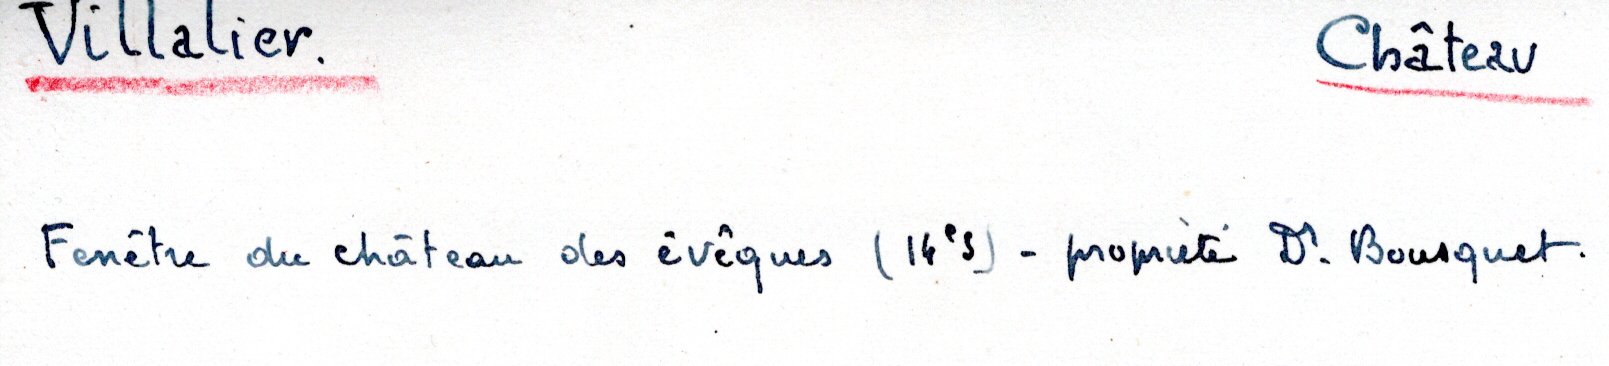 Villalier. Château
Fenêtre du château des évêques (14e s) - propriété Dr. Bousquet.